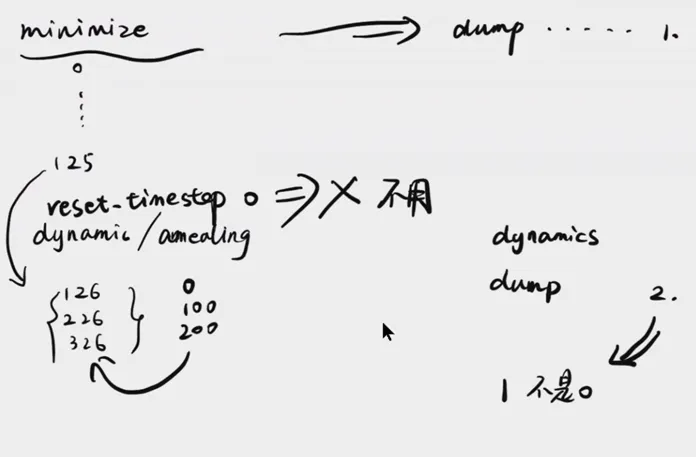 minimize
dump ...... 1.
0
125
reset-timestep 0 ⇒ X 不用
dynamic/annealing
126
226
326
0
100
200
dynamics
dump 2.
1 不是0